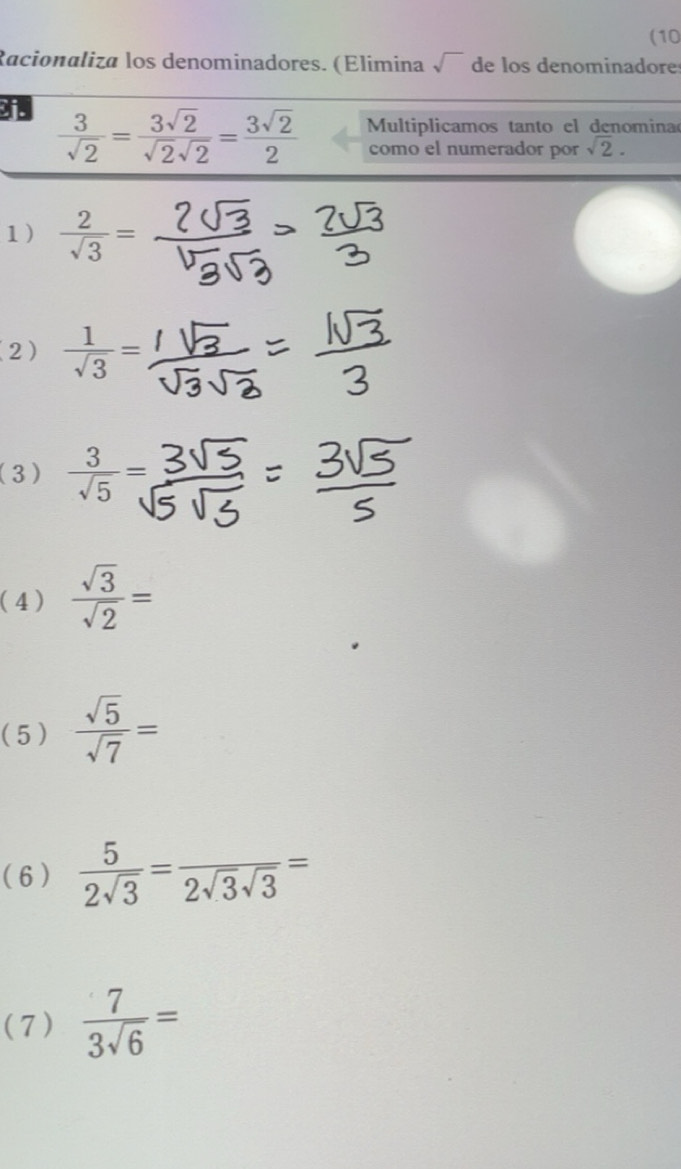 (10
Racionaliza los denominadores. (Elimina √ de los denominadores
Ej.
3/√2 = 3√2/√2√2 = 3√2/2 Multiplicamos tanto el denominad
como el numerador por √2 .
1) 2/√3 = 2√3/√3√3 = 2√3/3
2) 1/√3 = 1√3/√3√3 = 1√3/3
(3) 3/√5 = 3√5/√5√5 = 3√5/5
(4) √3/√2 =
(5) √5/√7 =
(6) 5/2√3 = /2√3√3 =
(7) 7/3√6 =